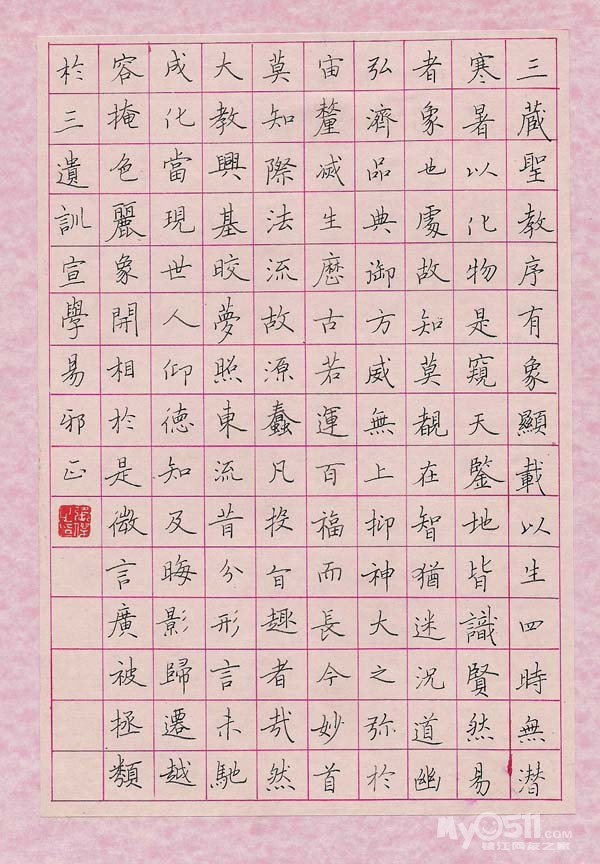 三藏聖教序有象顯載以生四時無潛
寒暑以化物是窺天鑒地皆識賢然易
者象也處故知莫覩在智猶迷況道幽
弘濟品典御方威無上抑神大之弥於
宙釐滅生歷古若運百福而長今妙首
莫知際法流故源蠢凡投旨趣者哉然
大教興基皎夢照東流昔分形言未馳
成化當現世人仰德知及晦影歸遷越
容掩色麗象開相於是微言廣被拯類
於三遺訓宣學易邪正
My0511.COM